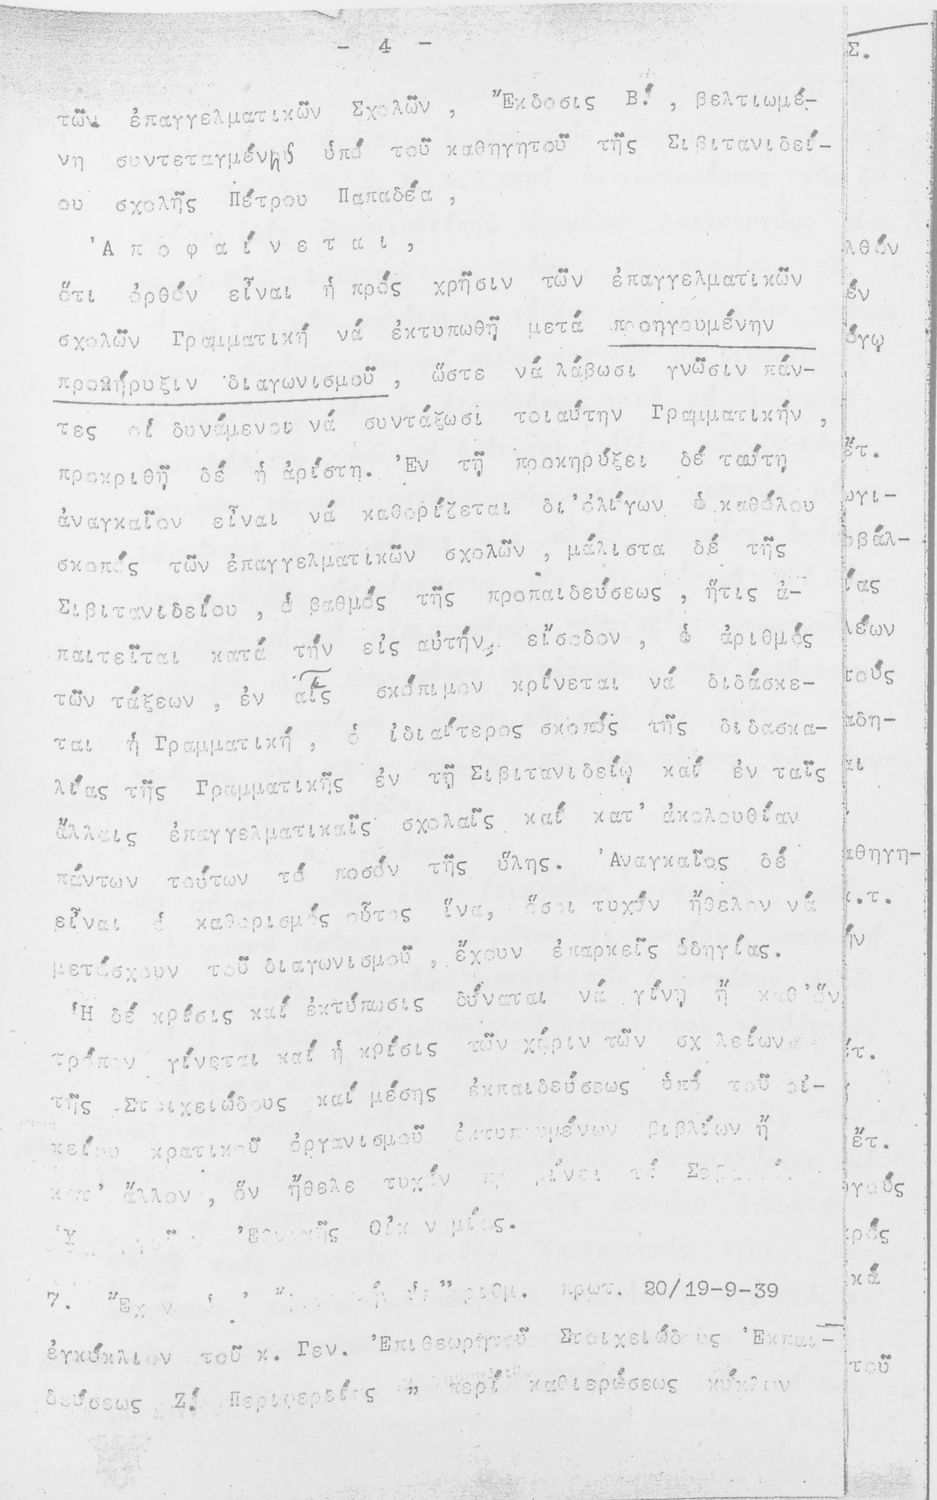 - 4 -
τῶν ἐπαγγελματικῶν Σχολῶν, "Εκδοσις Β!, βελτιωμέ-
νη συντεταγμένη ὑπό τοῦ καθηγητοῦ τῆς Σιβιτανιδεί-
ου σχολῆς Πέτρου Παπαδέα,
'Α π ο φ α ί ν ε τ α ι,
ὅτι ὀρθόν εἶναι ἡ πρός χρῆσιν τῶν ἐπαγγελματικῶν
σχολῶν Γραμματική νά ἐκτυπωθῇ μετά προηγουμένην
προκήρυξιν διαγωνισμοῦ, ὥστε νά λάβωσι γνῶσιν πάν-
τες οἱ δυνάμενοι νά συντάξωσι τοιαύτην Γραμματικήν,
προκριθῇ δέ ἡ ἀρίστη. 'Εν τῇ προκηρύξει δέ ταύτῃ
ἀναγκαῖον εἶναι νά καθορίζεται δι'ὀλίγων ὁ καθόλου
σκοπός τῶν ἐπαγγελματικῶν σχολῶν, μάλιστα δέ τῆς
Σιβιτανιδείου, ὁ βαθμός τῆς προπαιδεύσεως, ἥτις ἀ-
παιτεῖται κατά τήν εἰς αὐτήν εἴσοδον, ὁ ἀριθμός
τῶν τάξεων, ἐν αἷς σκόπιμον κρίνεται νά διδάσκε-
ται ἡ Γραμματική, ὁ ἰδιαίτερος σκοπός τῆς διδασκα-
λίας τῆς Γραμματικῆς ἐν τῇ Σιβιτανιδείῳ καί ἐν ταῖς
ἄλλαις ἐπαγγελματικαῖς σχολαῖς καί κατ' ἀκολουθίαν
πάντων τούτων τό ποσόν τῆς ὕλης. 'Αναγκαῖος δέ
εἶναι ὁ καθορισμός οὗτος ἵνα, ὅσοι τυχόν ἤθελον νά
μετάσχουν τοῦ διαγωνισμοῦ, ἔχουν ἐπαρκεῖς ὁδηγίας.
'Η δέ κρίσις καί ἐκτύπωσις δύναται νά γίνῃ ἤ καθ'ὅν
τρόπον γίνεται καί ἡ κρίσις τῶν χάριν τῶν σχολείων
τῆς Στοιχειώδους καί μέσης ἐκπαιδεύσεως ὑπό τοῦ οἰ-
κείου κρατικοῦ ὀργανισμοῦ ἐκτυπουμένων βιβλίων ἤ
κατ' ἄλλον, ὅν ἤθελε τυχόν τό
'Εθνικῆς Οἰκονομίας.
7. πρωτ. 20/19-9-39
ἐγκύκλιον τοῦ κ. Γεν. 'Επιθεωρητοῦ Στοιχειώδους 'Εκπαι-
δεύσεως Ζ! Περιφερείας " περί καθιερώσεως κύκλων
Σ.
λθόν
έν
όγῳ
ἔτ.
ωγι-
οβάλ-
ίας
λέων
τούς
αδη-
αι
αθηγη-
κ.τ.
ήν
ἔτ.
ἔτ.
γούς
κρός
κά
τοῦ